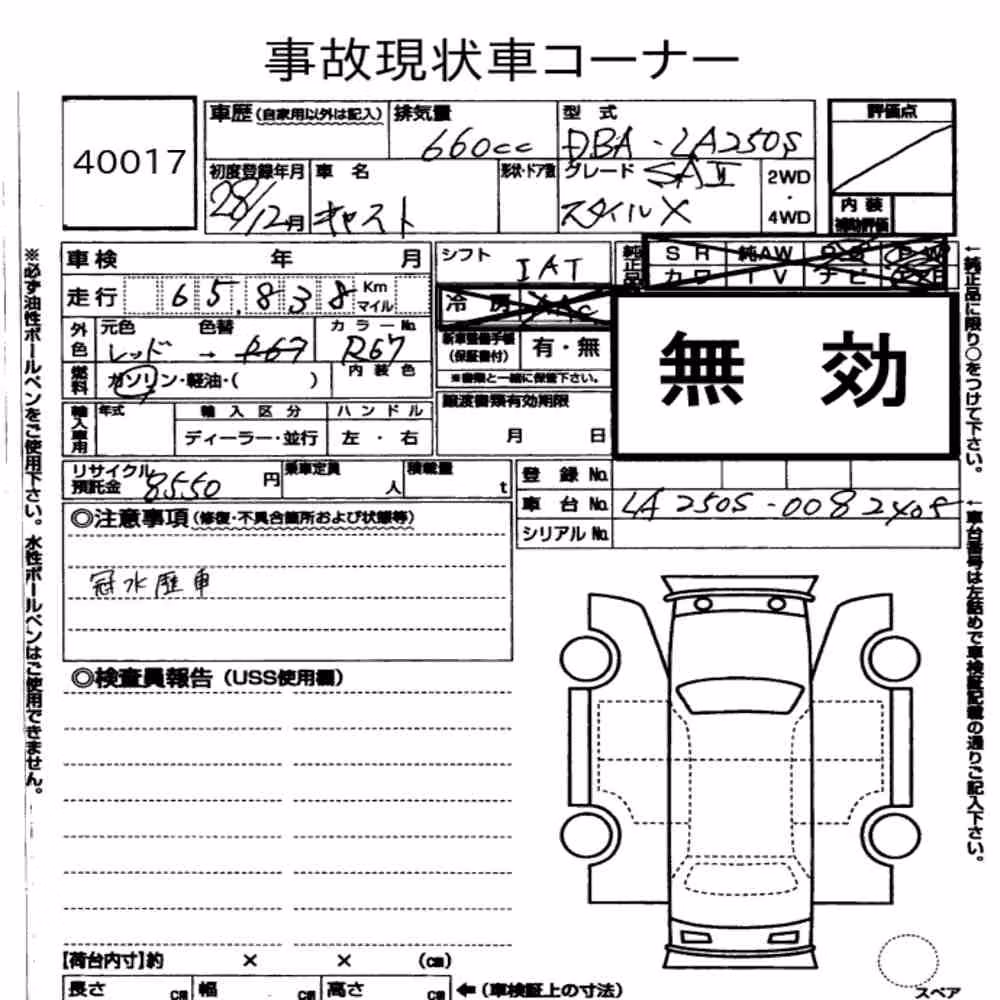 事故現状車コーナー
40017
車歴(自家用以外は記入) 排気量 型式 評価点
660cc DBA-LA250S
初度登録年月 車名 形状・ドア数 グレード SAⅡ 2WD・4WD
28/12月 キャスト スタイルX
内装
補助評価
車検 年 月 シフト IAT 純正品 SR 純AW
カワ TV ナビ
走行 65,838 Km マイル
冷房
外色 元色 色替 カラーNo.
レッド → R67 R67
新車整備手帳(保証書付) 有・無
※書類と一緒に保管下さい。
無効
燃料 ガソリン・軽油・( ) 内装色
譲渡書類有効期限
月 日
輸入車用 年式 輸入区分 ハンドル
ディーラー・並行 左・右
リサイクル預託金 8550円 乗車定員 人 積載量 t
登録No.
車台No. LA250S-0082405
シリアルNo.
◎注意事項(修復・不具合箇所および状態等)
冠水歴車
◎検査員報告(USS使用欄)
【荷台内寸】約 × × (cm)
長さ cm 幅 cm 高さ cm ←(車検証上の寸法)
スペア
※必ず油性ボールペンをご使用下さい。水性ボールペンはご使用できません。
←純正品に限り○をつけて下さい。
←車台番号は左詰めで車検証記載の通りご記入下さい。